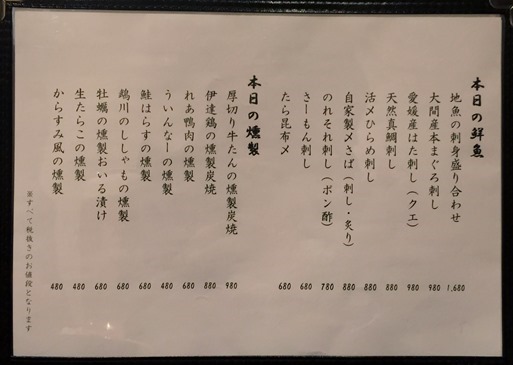 本日の鮮魚
地魚の刺身盛り合わせ 1,680
大間産本まぐろ刺し 980
愛媛産はた刺し（クエ） 980
天然真鯛刺し 880
活〆ひらめ刺し 880
自家製〆さば（刺し・炙り） 880
のれそれ刺し（ポン酢） 780
さーもん刺し 680
たら昆布〆 680
本日の燻製
厚切り牛たんの燻製炭焼 980
伊達鶏の燻製炭焼 880
れあ鴨肉の燻製 680
ういんなーの燻製 480
鮭はらすの燻製 680
鵡川のししゃもの燻製 680
牡蠣の燻製おいる漬け 680
生たらこの燻製 480
からすみ風の燻製 480
※すべて税抜きのお値段となります